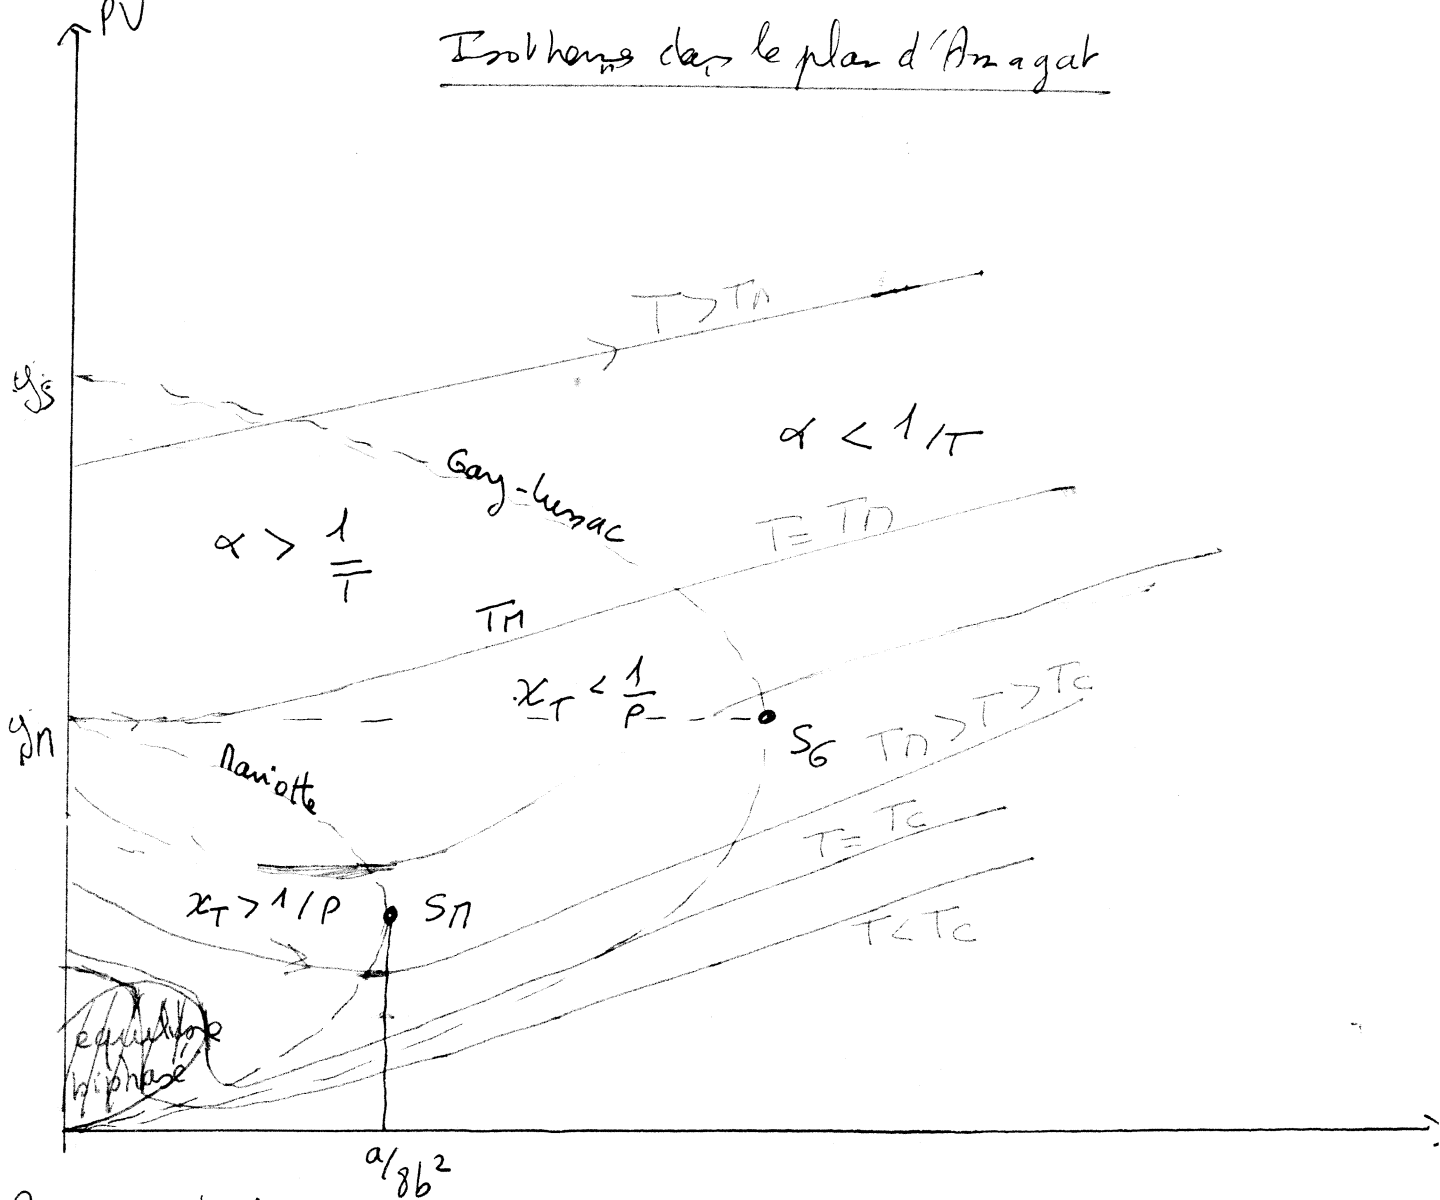 PV
Isothermes dans le plan d'Amagat
T > TM
yS
α < 1/T
Gay-Lussac
T = TM
α > 1/T
TM
χT < 1/P
yM
SG
TM > T > Tc
Mariotte
T = Tc
χT > 1/P
SM
T < Tc
équilibre
biphasé
a/8b²